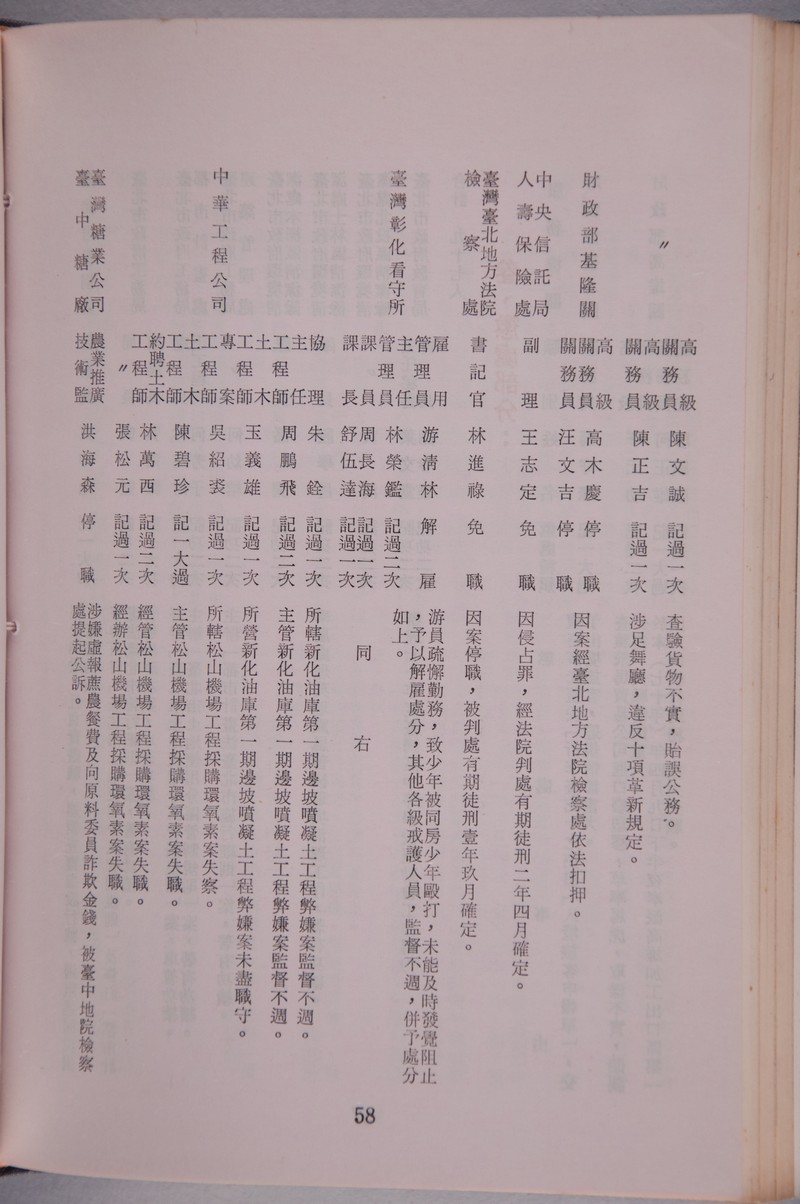 〃 高級關務員 陳文誠 記過一次 查驗貨物不實，貽誤公務。
高級關務員 陳正吉 記過一次 涉足舞廳，違反十項革新規定。
財政部基隆關 高級關務員 高木慶 停職 因案經臺北地方法院檢察處依法扣押。
關務員 汪文吉 停職
中央信託局人壽保險處 副理 王志定 免職 因侵占罪，經法院判處有期徒刑二年四月確定。
臺灣臺北地方法院檢察處 書記官 林進祿 免職 因案停職，被判處有期徒刑壹年玖月確定。
臺灣彰化看守所 雇用管理員 游淸林 解雇 游員疏懈勤務，致少年被同房少年毆打，未能及時發覺阻止，予以解雇處分，其他各級戒護人員，監督不週，併予處分如上。
主任管理員 林榮鑑 記過二次
課員 周長海 記過一次 同右
課長 舒伍達 記過一次
中華工程公司 協理 朱銓 記過一次 所轄新化油庫第一期邊坡噴凝土工程弊嫌案監督不週。
主任工程師 周鵬飛 記過二次 主管新化油庫第一期邊坡噴凝土工程弊嫌案監督不週。
土木工程師 玉義雄 記過一次 所營新化油庫第一期邊坡噴凝土工程弊嫌案未盡職守。
專案工程師 吳紹裘 記過一次 所轄松山機場工程採購環氧素案失察。
土木工程師 陳碧珍 記一大過 主管松山機場工程採購環氧素案失職。
約聘土木工程師 林萬西 記過二次 經管松山機場工程採購環氧素案失職。
〃 張松元 記過一次 經辦松山機場工程採購環氧素案失職。
臺灣糖業公司臺中糖廠 農業推廣技術監 洪海森 停職 涉嫌虛報蔗農餐費及向原料委員詐欺金錢，被臺中地院檢察處提起公訴。
58